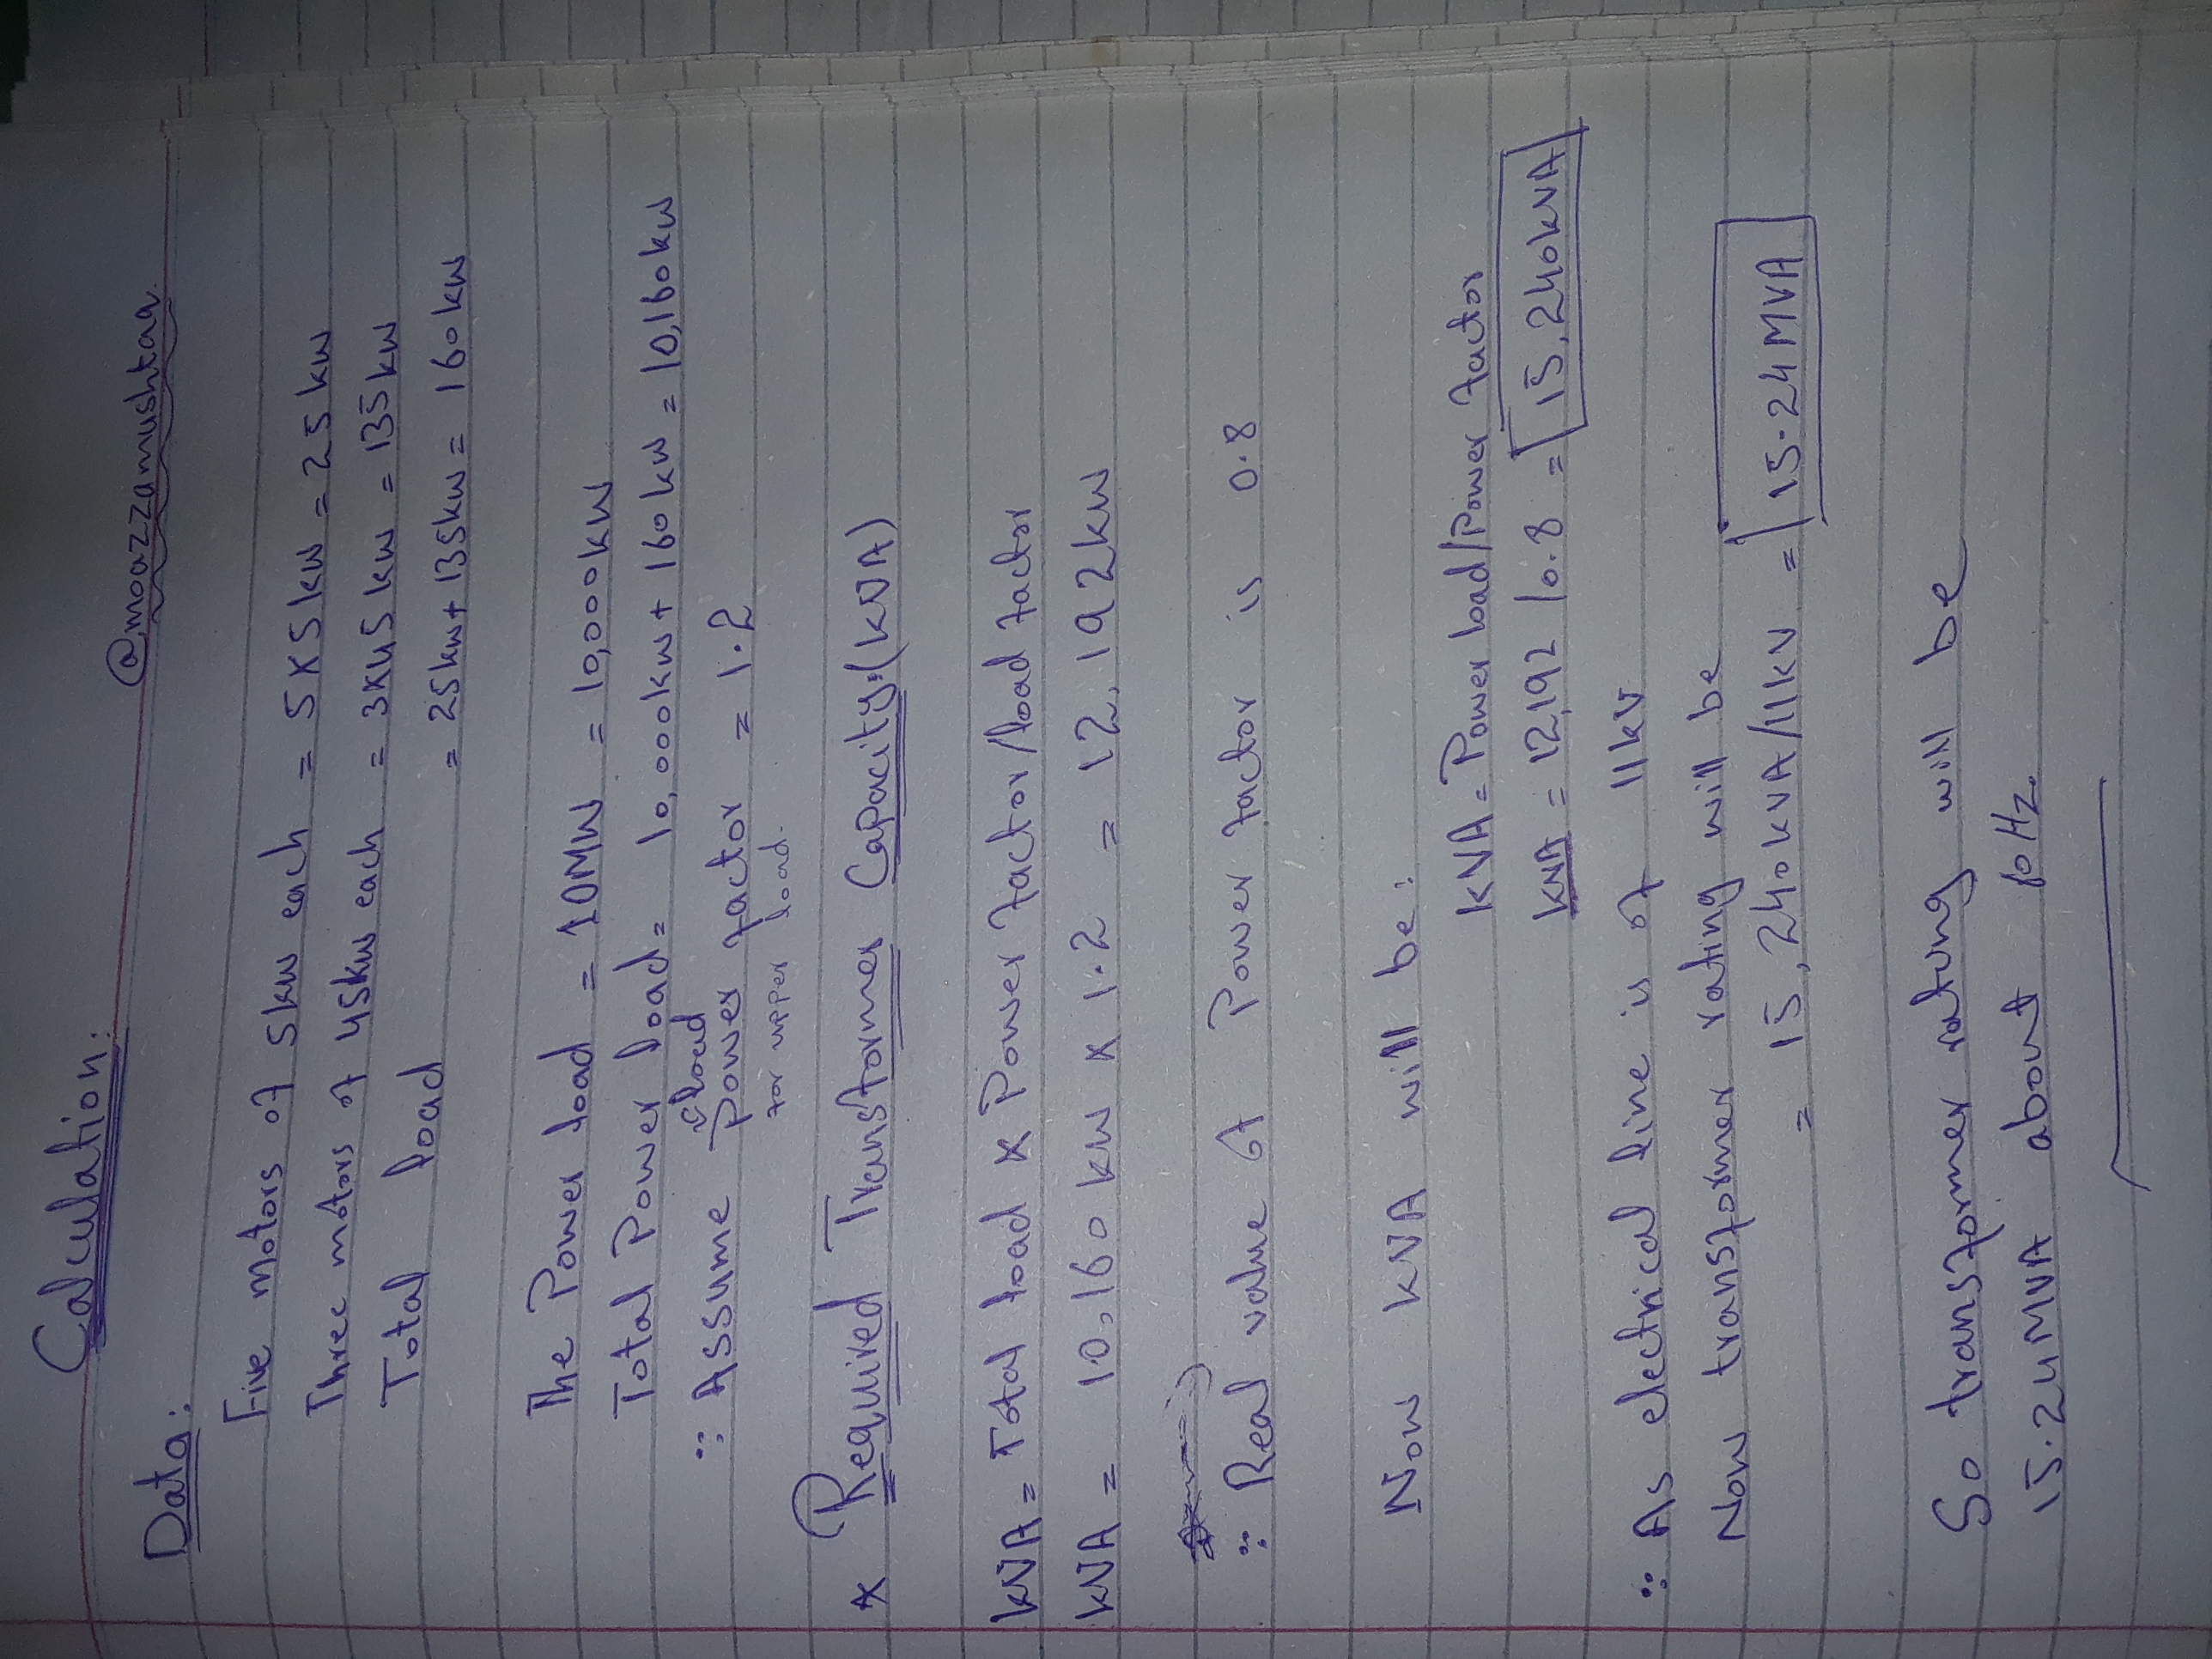 Calculation:
@moazzamushtaq
Data:
Five motors of 5kw each = 5x5kw = 25kw
Three motors of 45kw each = 3x45kw = 135kw
Total load = 25kw+135kw = 160kw
The Power load = 10MW = 10,000kW
Total Power load = 10,000kw + 160kw = 10,160kw
load
:: Assume power factor = 1.2
for upper load.
* Required Transformer Capacity:(kVA)
kVA = Total load x Power factor/load factor
kVA = 10,160 kw x 1.2 = 12,192kw
:: Real value of Power factor is 0.8
Now kVA will be:
kVA = Power load/Power factor
kVA = 12,192/0.8 = 15,240kVA
:: As electrical line is of 11kV
Now transformer rating will be
= 15,240kVA/11kV = 15.24MVA
So transformer rating will be
15.24MVA about